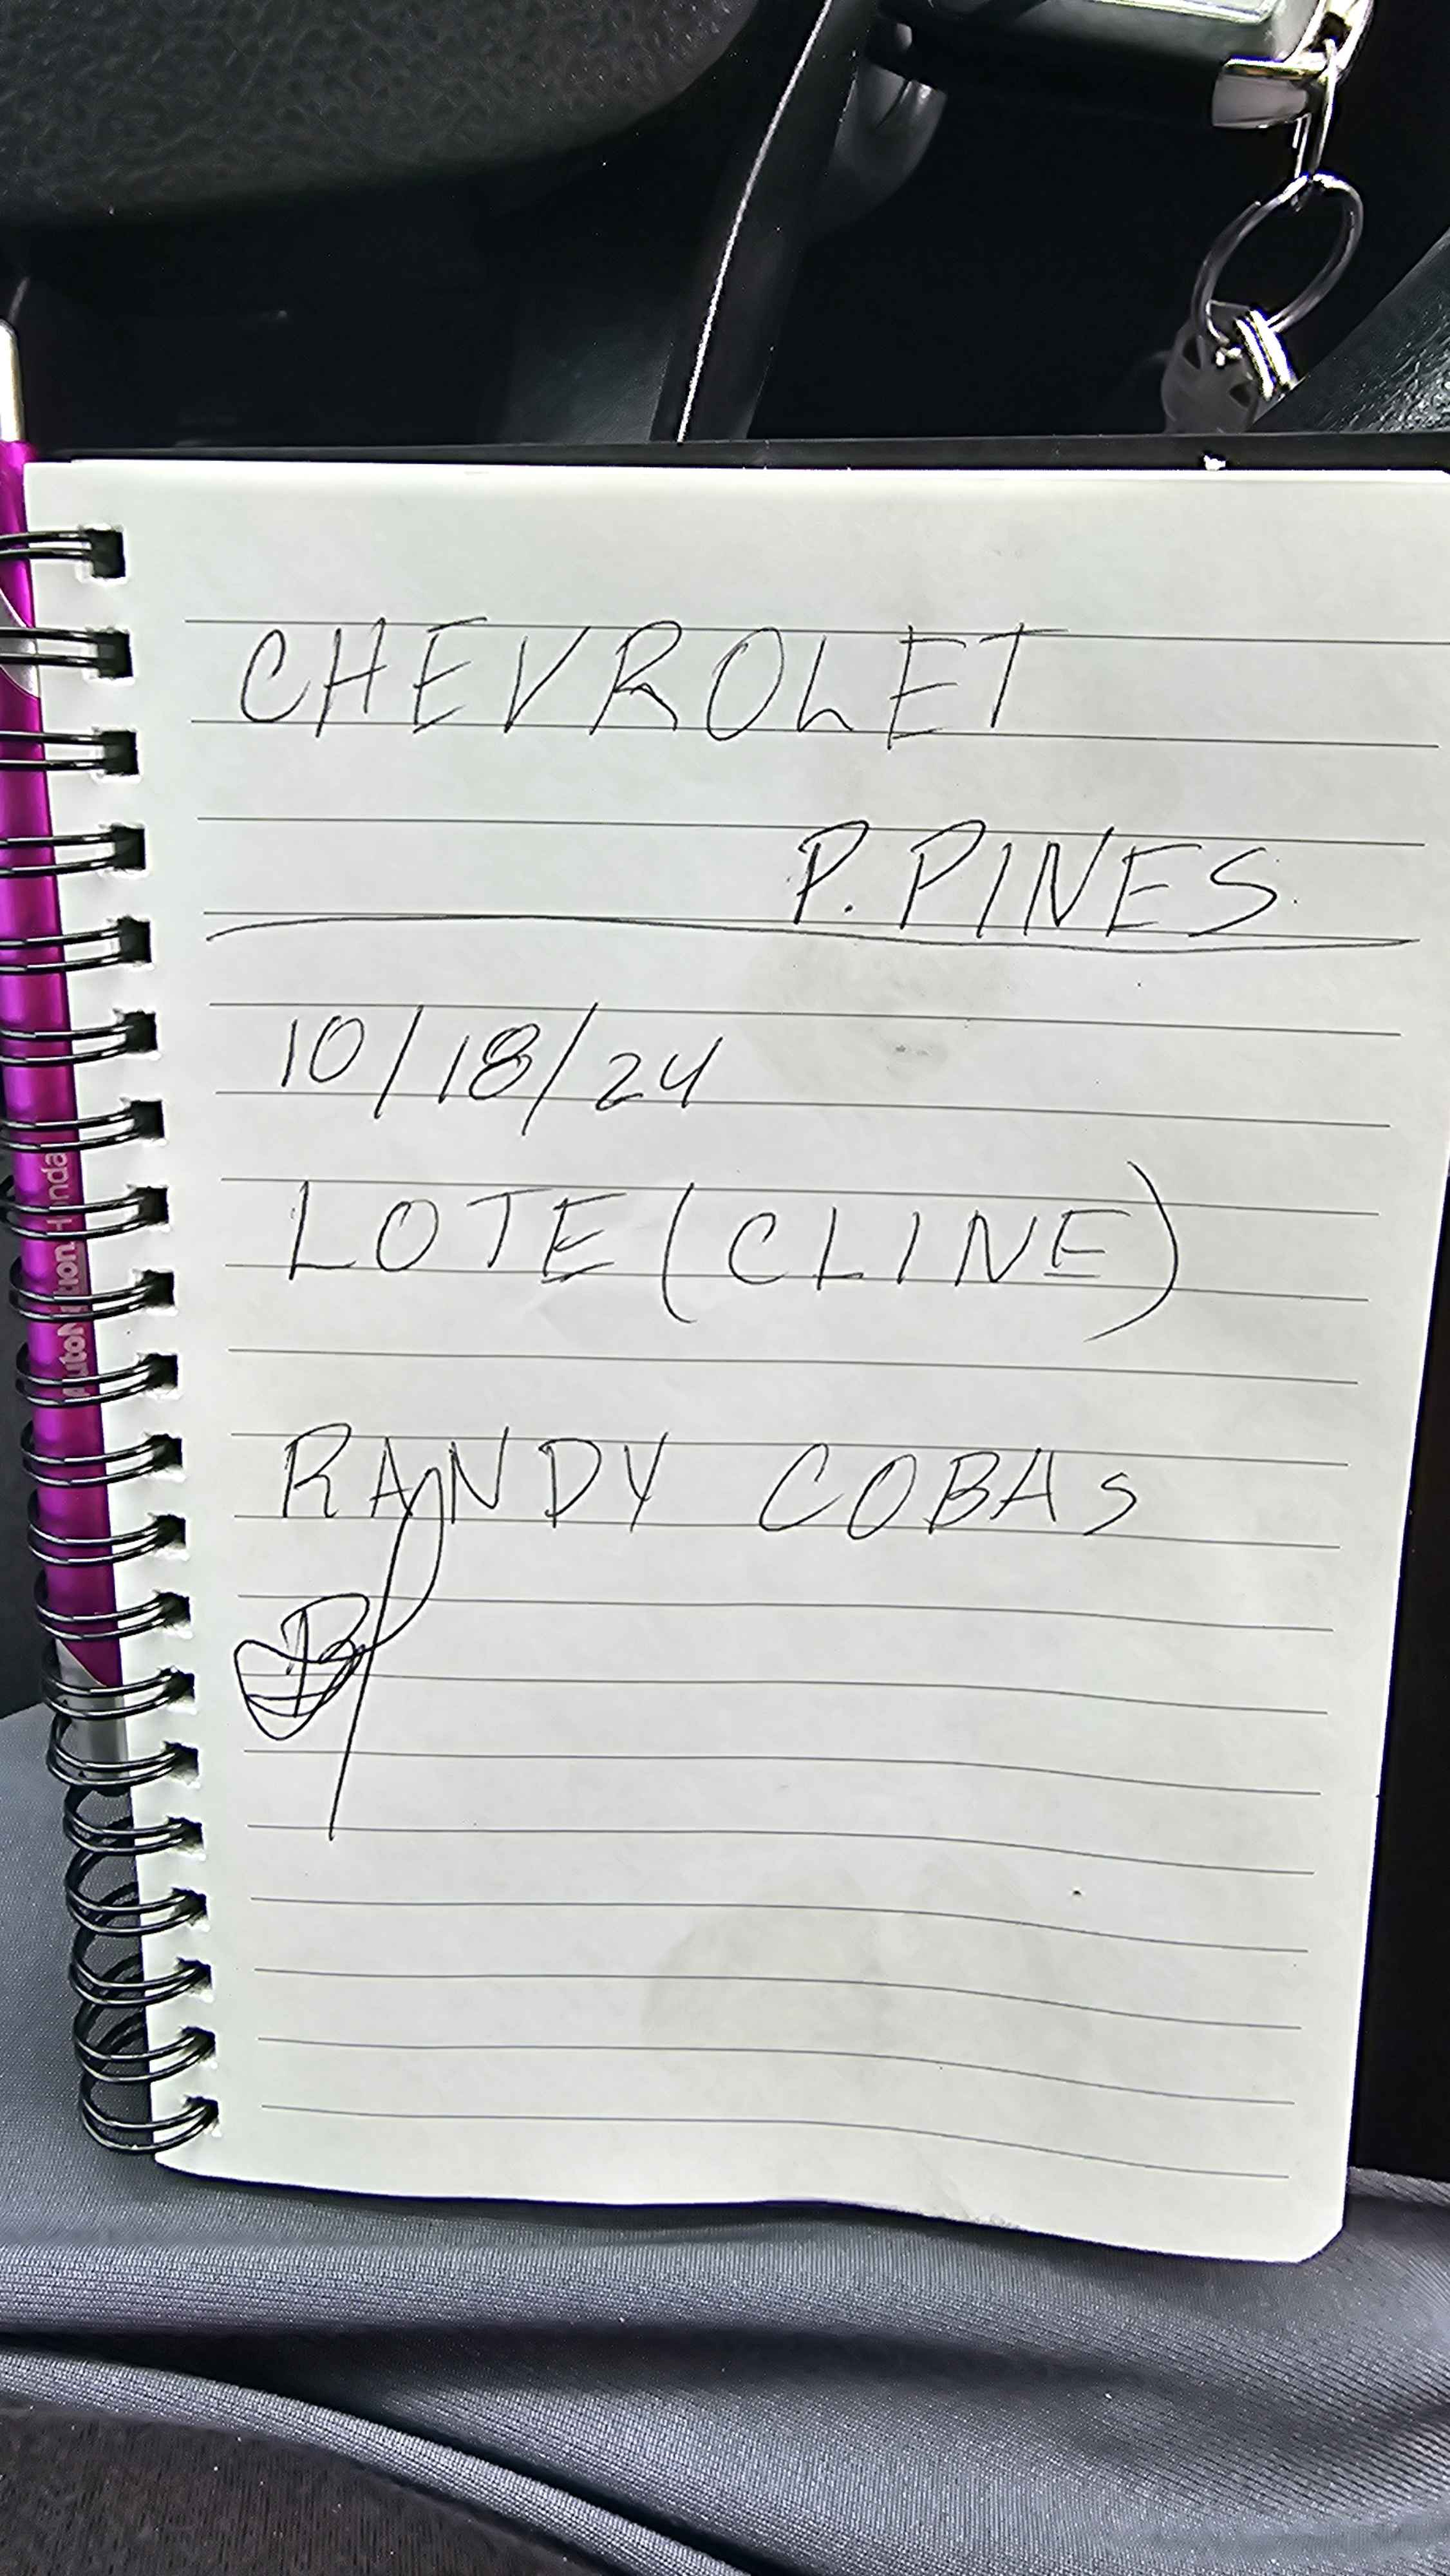 CHEVROLET
P. PINES
10/18/24
LOTE (CLINE)
RANDY COBAS
AutoNation Honda